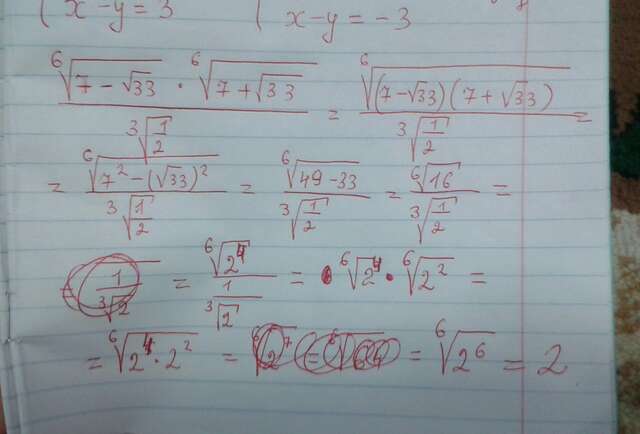 { x-y = 3 { x-y = -3
⁶√(7-√33) · ⁶√(7+√33) / ³√(1/2) = ⁶√((7-√33)(7+√33)) / ³√(1/2) =
= ⁶√(7²-(√33)²) / ³√(1/2) = ⁶√(49-33) / ³√(1/2) = ⁶√16 / ³√(1/2) =
1/³√2 = ⁶√(2⁴) / (1/³√2) = ⁶√(2⁴) · ⁶√(2²) =
= ⁶√(2⁴·2²) = = ⁶√(2⁶) = 2